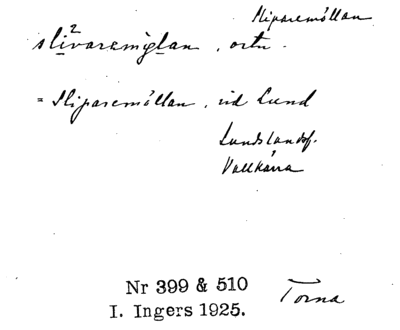 Sliparemöllan
slī²varemø̨lan, ortn.
= Sliparemöllan, vid Lund
Lundslandsf.
Vallkärra
Nr 399 & 510
I. Ingers 1925.
Torna